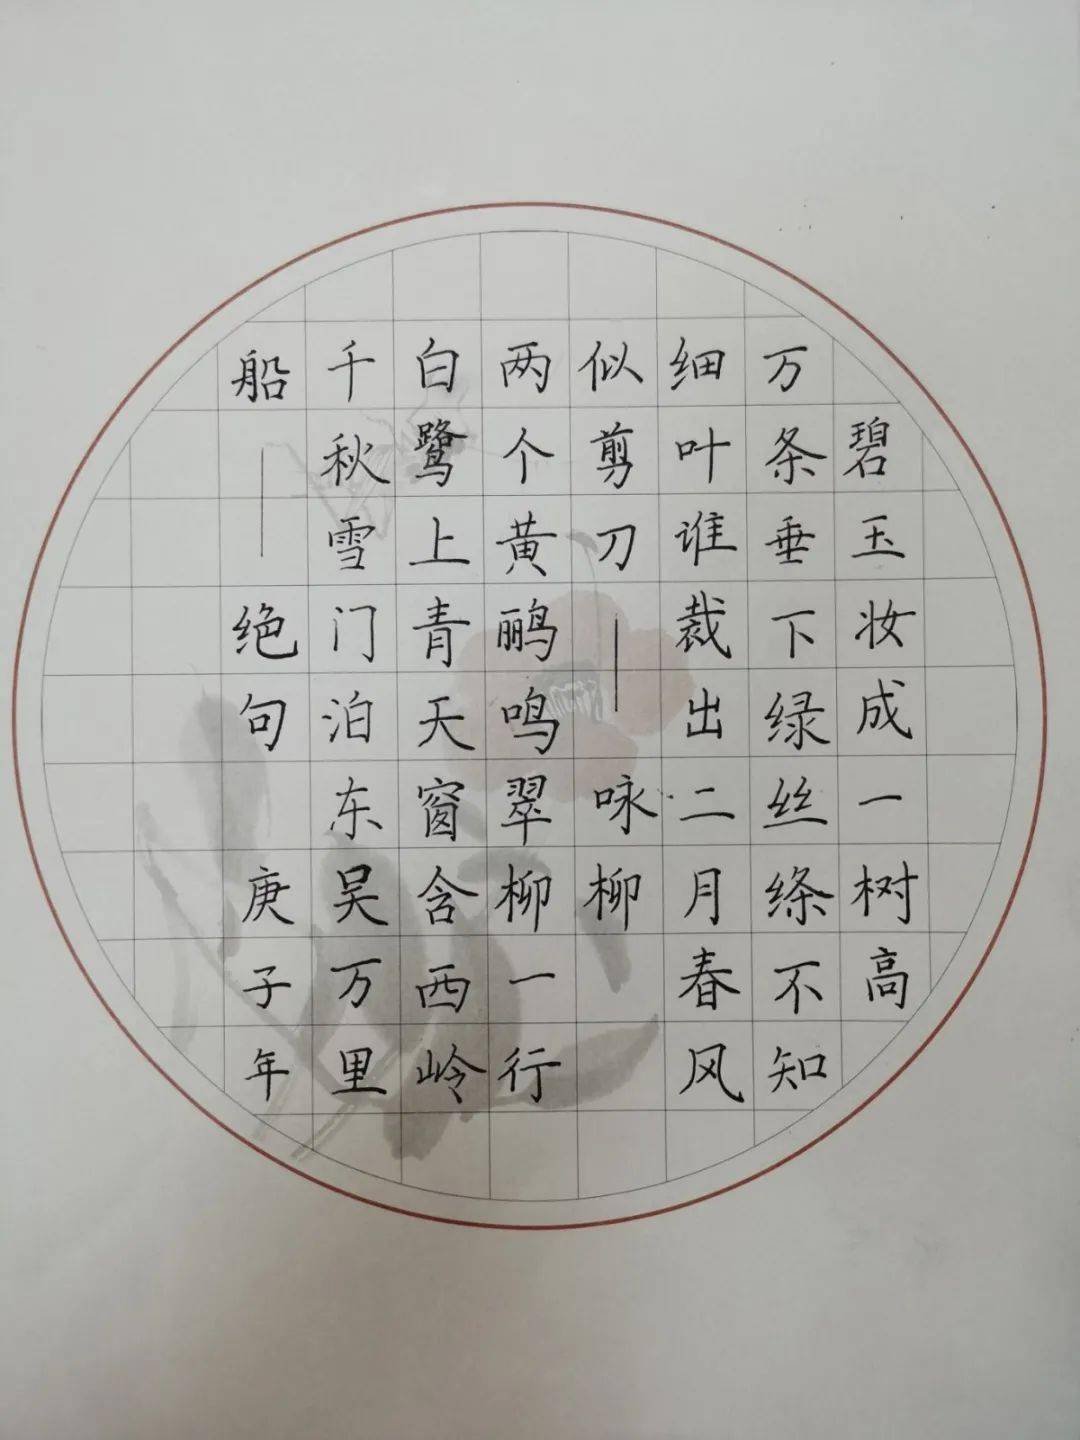 碧玉妆成一树高
万条垂下绿丝绦不知
细叶谁裁出二月春风
似剪刀——咏柳
两个黄鹂鸣翠柳一行
白鹭上青天窗含西岭
千秋雪门泊东吴万里
船——绝句 庚子年